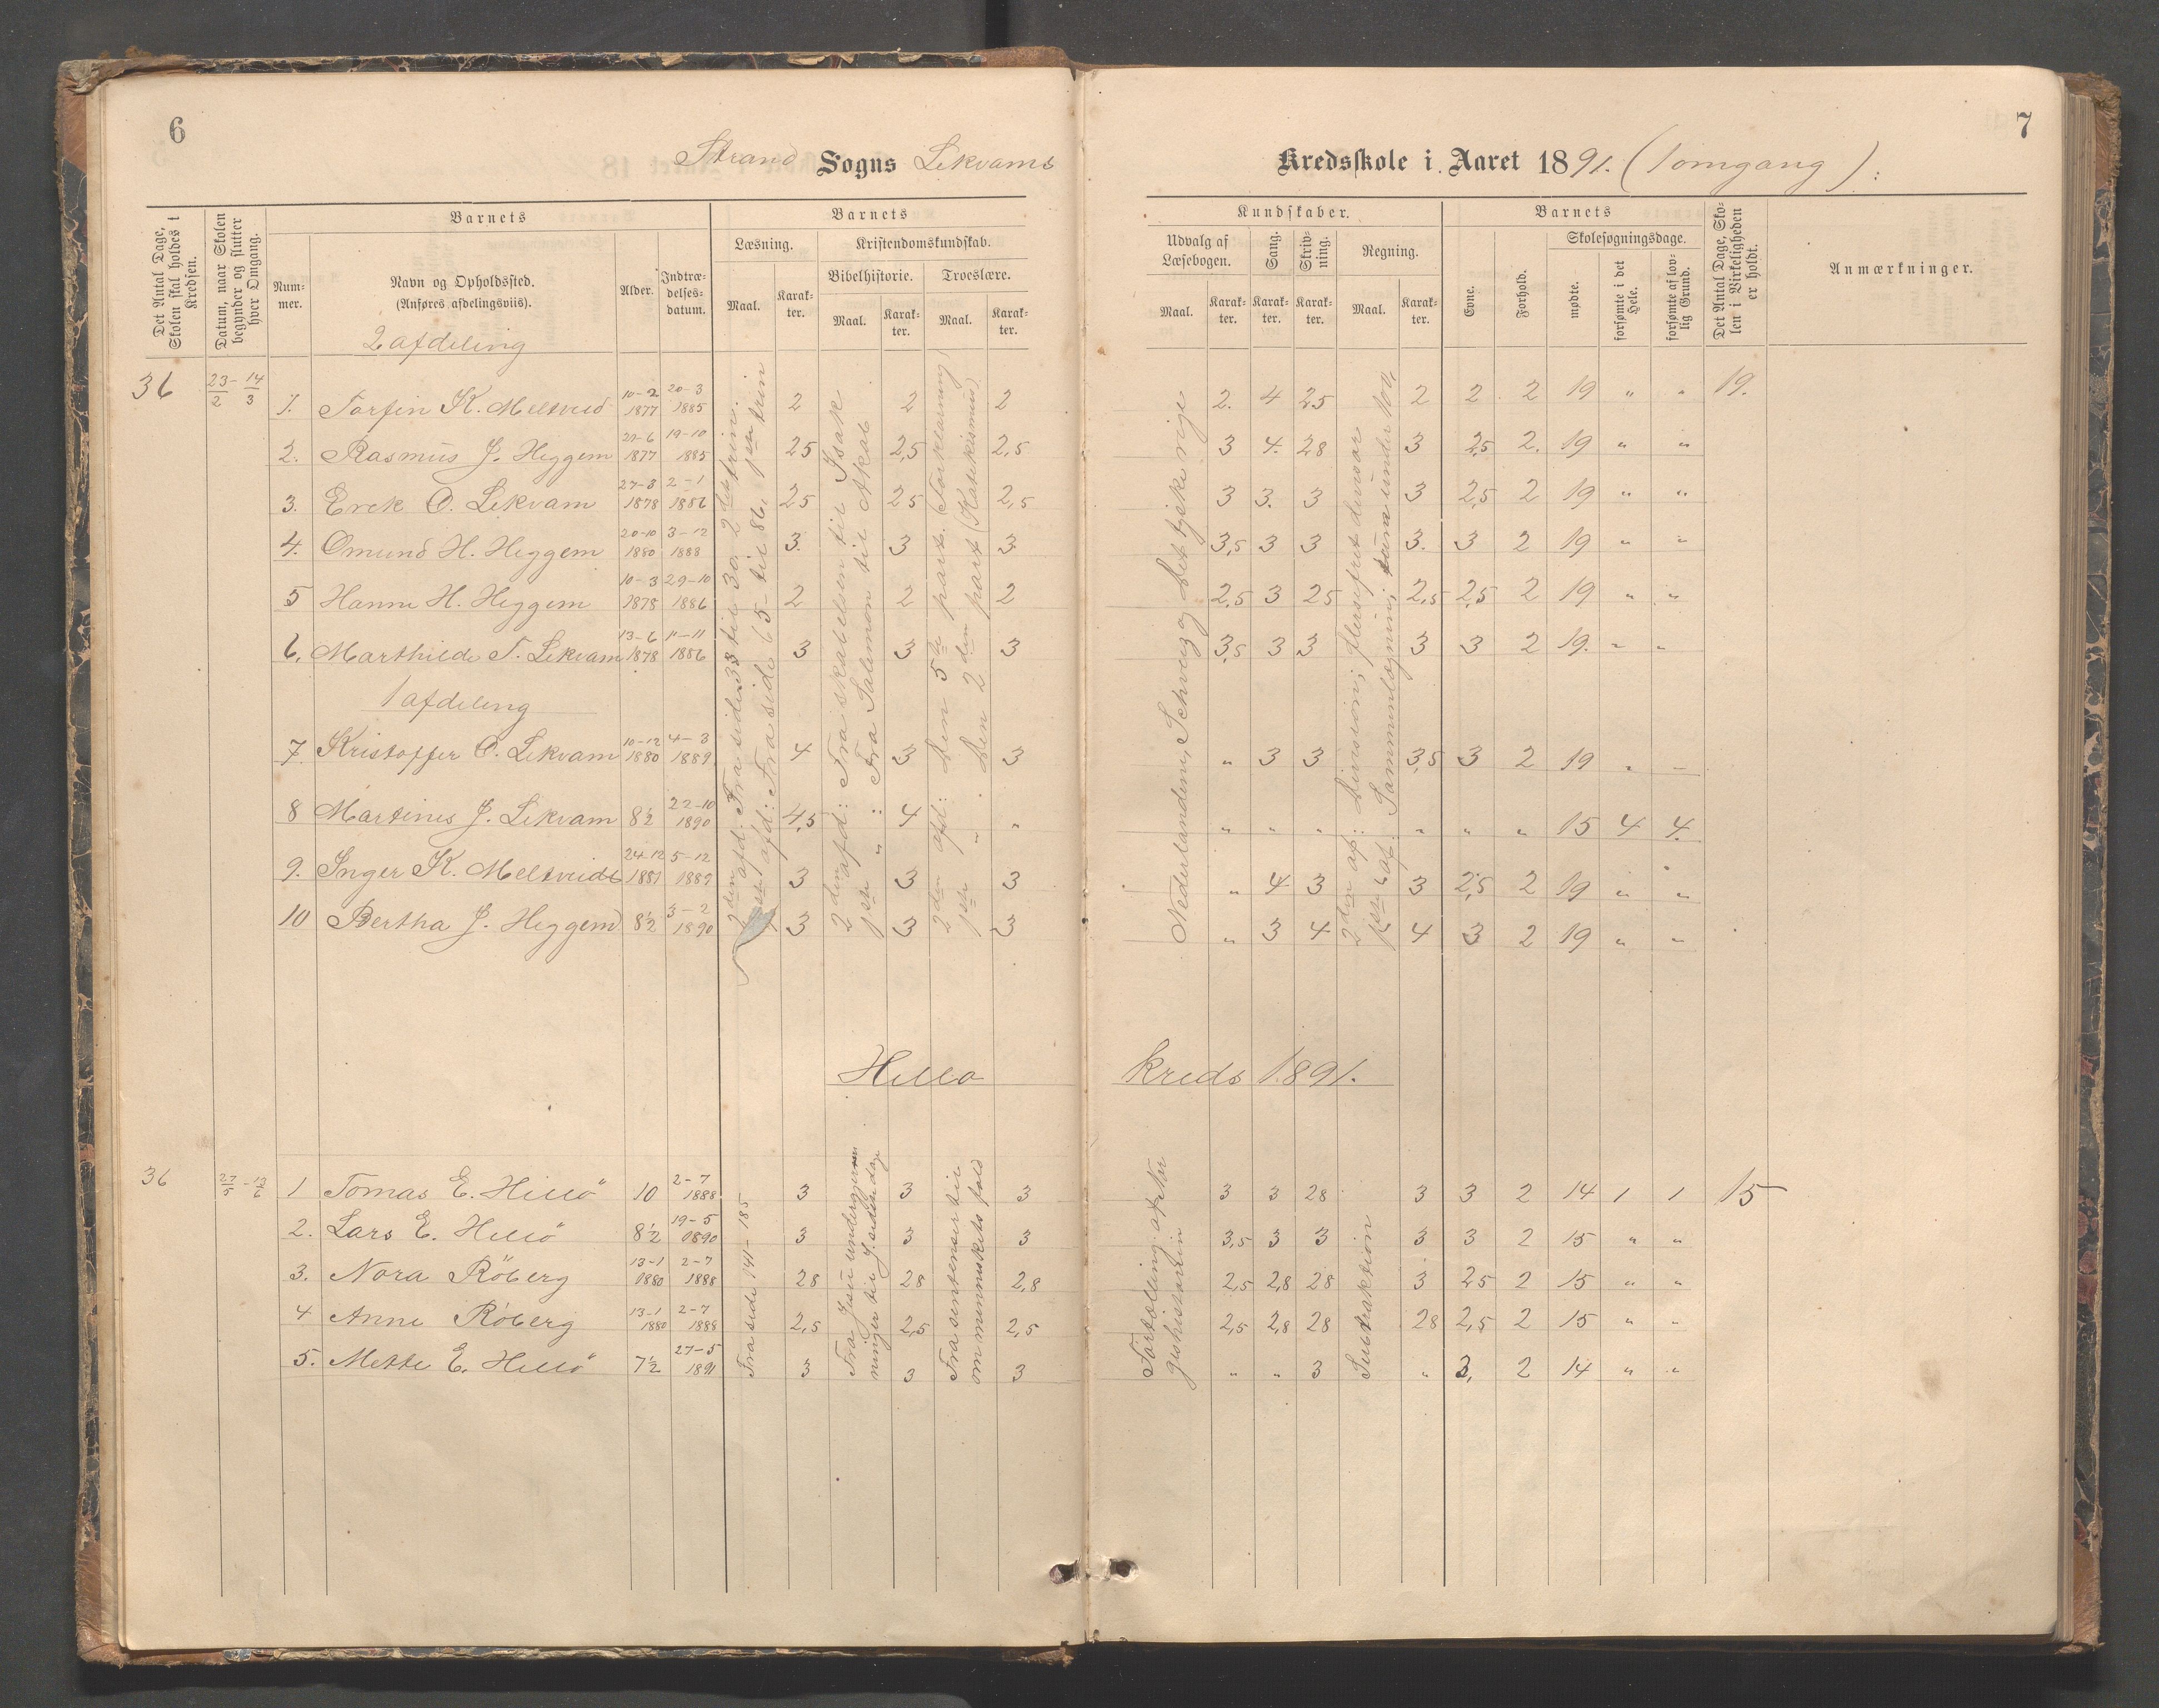 6
Strand Sogns Lekvams
Det Antal Dage, Skolen skal holdes i Kredsen.
Datum, naar Skolen begynder og slutter hver Omgang.
Barnets
Num-
mer.
Navn og Opholdssted.
(Anføres afdelingsviis).
Alder.
Indtræ-
delses-
datum.
Barnets
Læsning.
Kristendomskundskab.
Bibelhistorie.
Troeslære.
Maal.
Karak-
ter.
Maal.
Karak-
ter.
Maal.
Karak-
ter.
2 afdeling
36 23/2 - 14/3
1. Torfin K. Meltveid 10-2 1877 20-3 1885 2 2 2
2. Rasmus J. Heggem 29-6 1877 19-10 1885 25 2,5 2,5
3. Erek O. Lekvam 27-3 1878 2-1 1886 25 25 2,5
4. Omund H. Heggem 20-10 1880 3-12 1888 3. 3 3
5 Hanne H. Heggem 10-3 1878 29-10 1886 2 2 2
6. Marthilde T. Lekvam 13-6 1878 11-11 1886 3 3 3
1 afdeling
7. Kristoffer O. Lekvam 10-12 1880 4-3 1889 4 3 3
8 Martines J. Lekvam 8½ 22-10 1890 4,5 4 "
9. Inger K. Meltveidt 24-12 1881 5-12 1889 3 3 3
10 Bertha J. Heggem 8½ 3-2 1890 3 3 3
2den afd: Fra side 33 til 30. 2det trin.
1ste afd: Fra side 65 - til 86, 1ste trin
2den afd: Fra skabelsen til Isak
1ste " : Fra Salomon til Akab
2den afd: Den 5te part. (Forklaring)
1ste " . Den 2den part (Katekismus)
Hillø
36 27/5 - 13/6
1 Tomas E. Hillö 10 2-7 1888 3 3 3
2. Lars E. Hillö 8½ 19-5 1890 3 3 3
3. Nora Röberg 13-1 1880 2-7 1888 28 28 2,8
4 Anne Röberg 13-1 1880 2-7 1888 2,5 2,5 2,5
5. Mette E. Hillö 7½ 27-5 1891 3 3 3
Fra side 141 - 185
Fra Jesu undergjerninger til J. sidste dage
Fra sentenser til
om menneskets fald
7
Kredsskole i Aaret 1891. (1 omgang):
Kundskaber.
Udvalg af
Læsebogen.
Sang.
Skriv-
ning.
Regning.
Maal.
Karak-
ter.
Karak-
ter.
Karak-
ter.
Maal.
Karak-
ter.
Barnets
Evne.
Forhold.
Skolesøgningsdage.
mødte.
forsømte i det Hele.
forsømte af lov-
lig Grund.
Det Antal Dage, Sko-
len i Virkeligheden
er holdt.
Anmærkninger.
2. 4 25 2 2 2 19 " " 19.
3 4. 28 3 2,5 2. 19 " "
3 3. 3 3 2,5 2 19 " "
3,5 3 3 3. 3 2 19 " "
2,5 3 25 2,5 2,5 2 19 " "
3,5 3 3 3 3 2 19. " "
" 3 3 3,5 3 2 19 " "
" " " " " " 15 4 4.
" 4 3 3 2,5 2 19 " "
" 3 4 4 3 2 19 " "
Nederlandene, Schveiz og Det tyske rige
2den af: Division; flersifret divisor
1ste af: Sammenlægning under 100,
kreds 1891.
3 3 28 3 3 2 14 1 1 15
3,5 3 3 3 3 2 15 " "
2,5 2,8 28 3 25 2 15 " "
2,5 2,8 28 28 2,5 2 15 " "
" " 3 " 3. 2 14 " "
Fortælling af Nor
geshistorien
Subtraktion